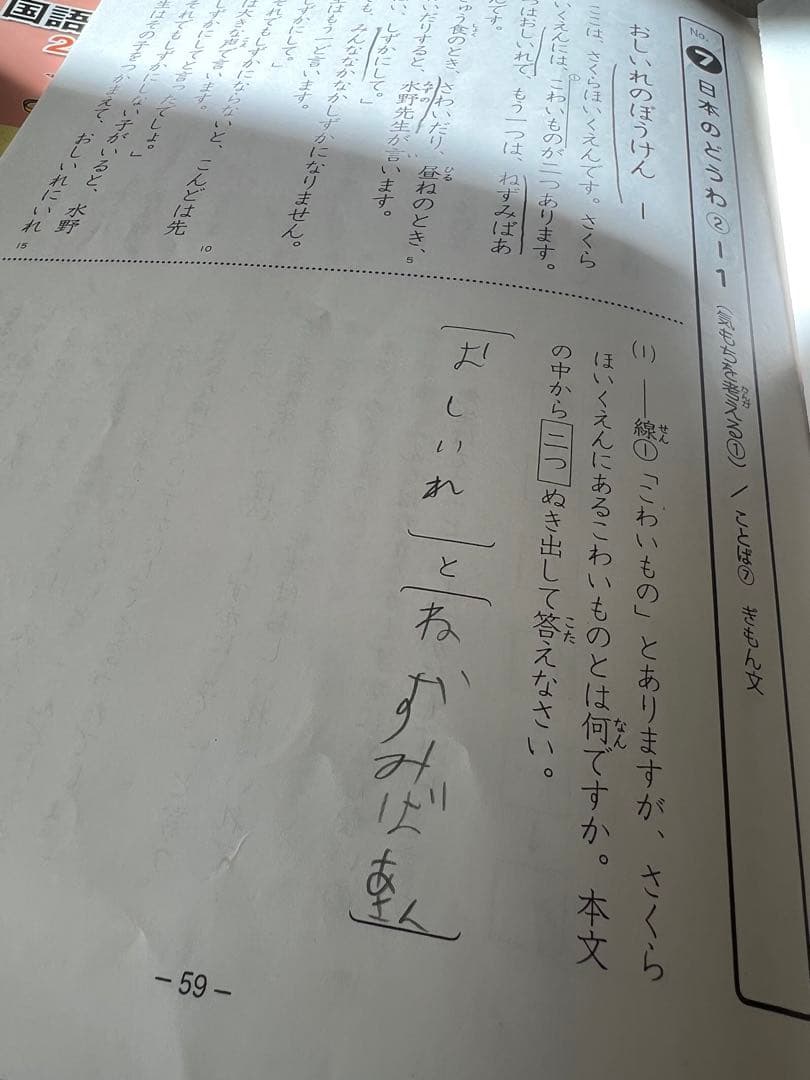 No.7 日本のどうわ②ー1 (気もちを考える①)/ことば⑦ ぎもん文
おしいれのぼうけん 1
ここは、さくらほいくえんです。さくら
いくえんには、こわいものが二つあります。
はおしいれで、もう一つは、ねずみばあ
んです。
ゅう食のとき、さわいだり、昼ねのとき、
いだりすると、水野先生が言います。
しずかにして。」
も、みんななかなかしずかになりません。
はもう一ど言います。
しずかにして。」
れでもしずかにならないと、こんどは先
は大きな声で言います。
しずかにしてと言ったでしょ。」
それでもしずかにしない子がいると、水野
生はその子をつかまえて、おしいれにいれ
5
10
15
(1) ――線①「こわいもの」とありますが、さくら
ほいくえんにあるこわいものとは何ですか。本文
の中から二つぬき出して答えなさい。
おしいれ と ねずみばあさん
－59－
国語
2